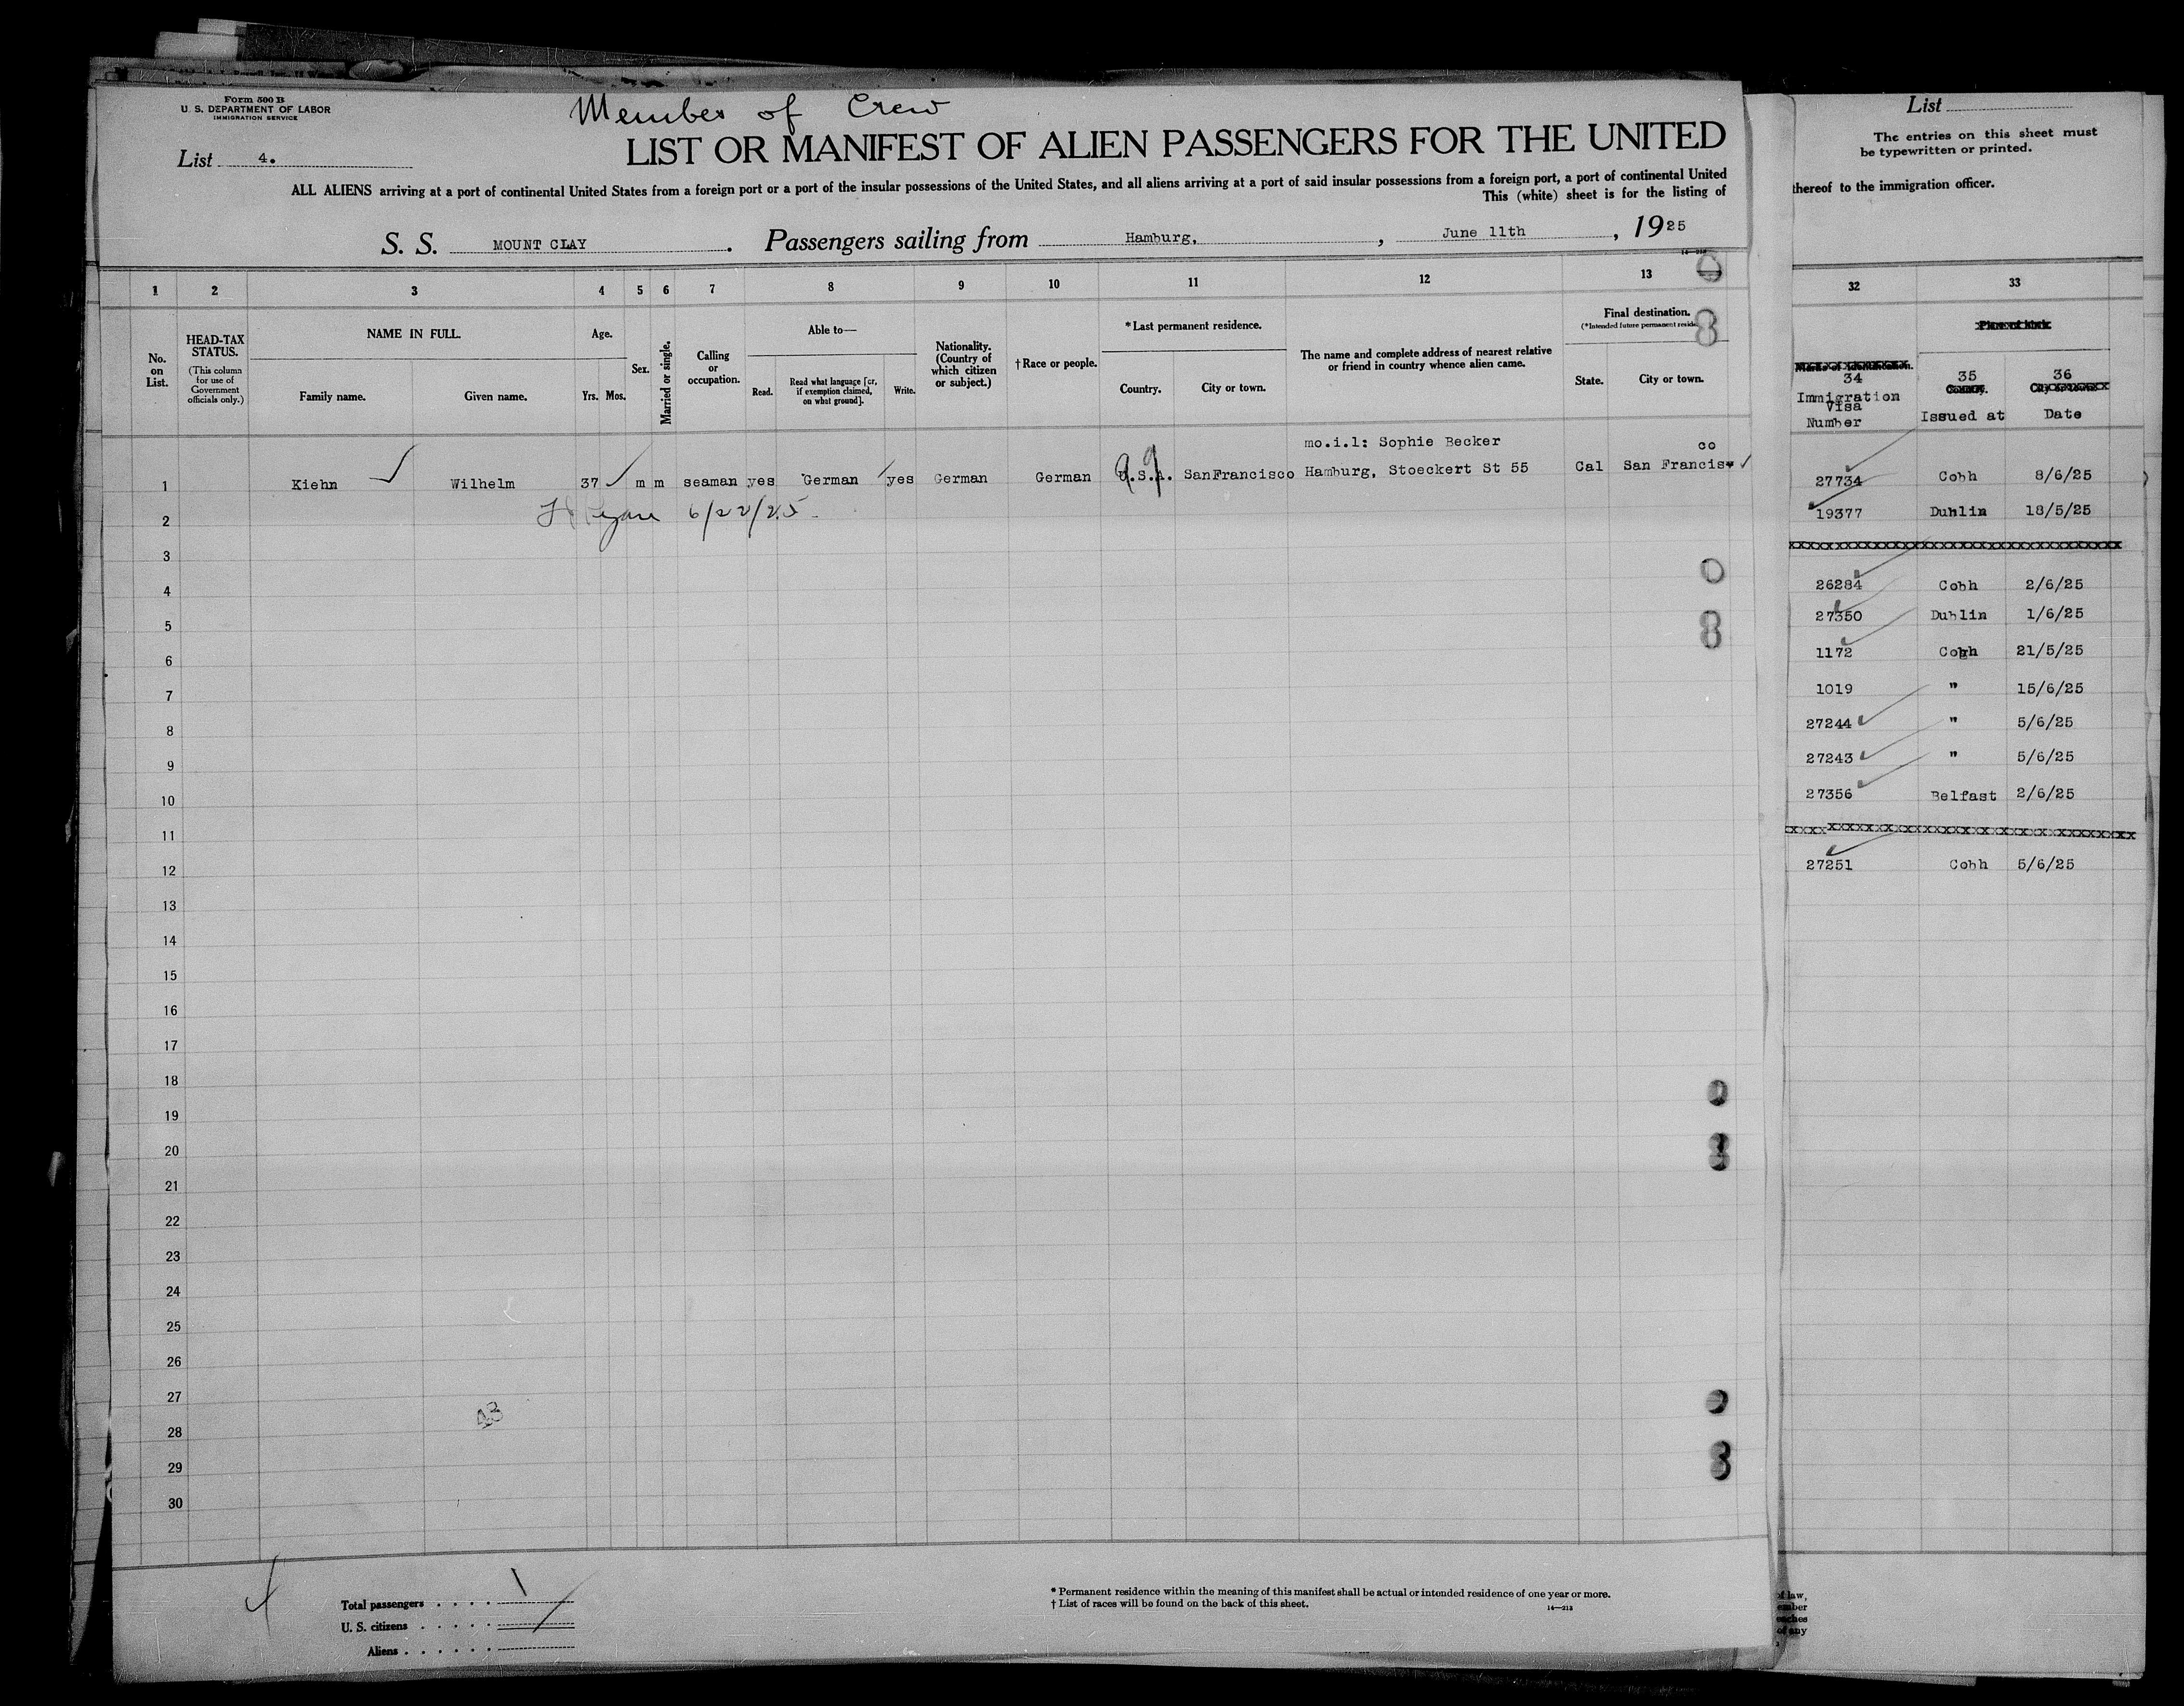 Form 500 B
U. S. DEPARTMENT OF LABOR
IMMIGRATION SERVICE
Member of Crew
List 4.
LIST OR MANIFEST OF ALIEN PASSENGERS FOR THE UNITED
ALL ALIENS arriving at a port of continental United States from a foreign port or a port of the insular possessions of the United States, and all aliens arriving at a port of said insular possessions from a foreign port, a port of continental United
This (white) sheet is for the listing of
S. S. MOUNT CLAY. Passengers sailing from Hamburg, , June 11th , 1925
1 2 3 4 5 6 7 8 9 10 11 12 13
No. on List.
HEAD-TAX STATUS.
(This column for use of Government officials only.)
NAME IN FULL.
Family name. Given name.
Age.
Yrs. Mos.
Sex.
Married or single.
Calling or occupation.
Able to—
Read. Read what language [or, if exemption claimed, on what ground]. Write.
Nationality. (Country of which citizen or subject.)
†Race or people.
*Last permanent residence.
Country. City or town.
The name and complete address of nearest relative or friend in country whence alien came.
Final destination.
(*Intended future permanent
State. City or town.
mo.i.l: Sophie Becker co
1 Kiehn Wilhelm 37 m m seaman yes German yes German German U.S.A. SanFrancisco Hamburg, Stoeckert St 55 Cal San Francis
6/22/25
2
3
4
5
6
7
8
9
10
11
12
13
14
15
16
17
18
19
20
21
22
23
24
25
26
27
28
29
30
Total passengers
U. S. citizens
Aliens
* Permanent residence within the meaning of this manifest shall be actual or intended residence of one year or more.
† List of races will be found on the back of this sheet.
14—213
List
The entries on this sheet must
be typewritten or printed.
thereof to the immigration officer.
32 33
34 35 36
Immigration Visa Number Issued at Date
27734 Cobh 8/6/25
19377 Dublin 18/5/25
xxxxxxxxxxxxxxxxxxxxxxxxxxxxxxxxxxx
26284 Cobh 2/6/25
27350 Dublin 1/6/25
1172 Cobh 21/5/25
1019 " 15/6/25
27244 " 5/6/25
27243 " 5/6/25
27356 Belfast 2/6/25
xxxxxxxxxxxxxxxxxxxxxxxxxxxxxxxxxxx
27251 Cobh 5/6/25
of law,
of any